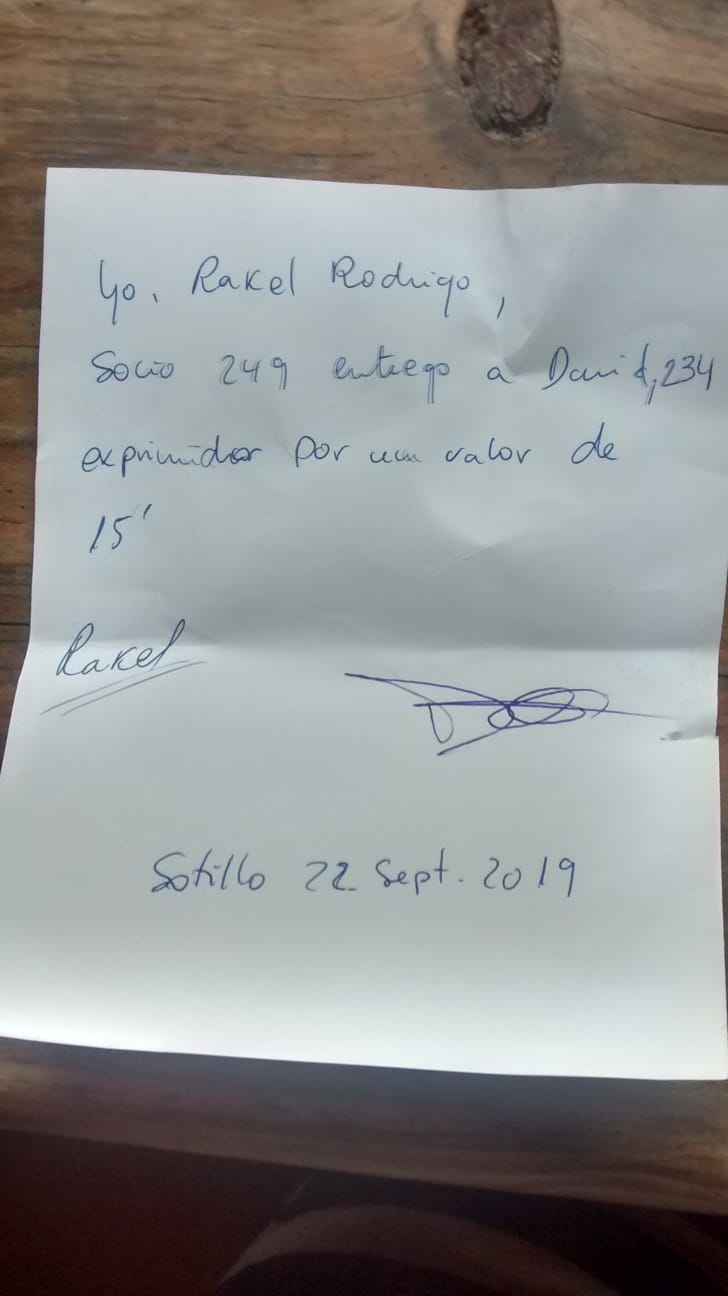 Yo, Rakel Rodrigo,
Socio 249 entrego a David, 234
exprimidor por un valor de
15'
Rakel
Sotillo 22 Sept. 2019